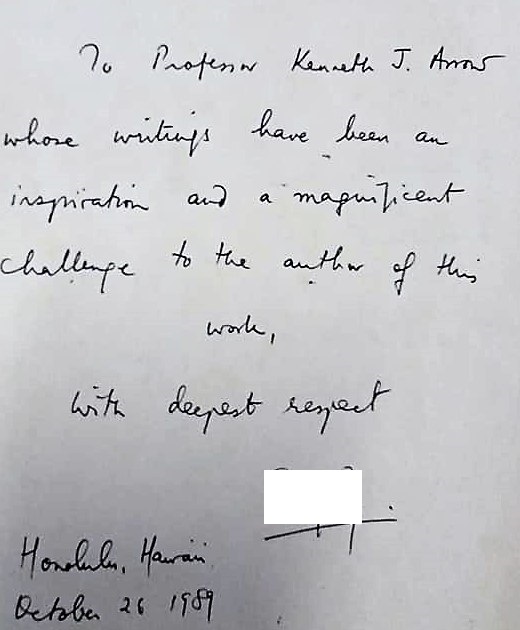 To Professor Kenneth J. Arrow
whose writings have been an
inspiration and a magnificent
challenge to the author of this
work,
with deepest respect
Honolulu, Hawaii
October 26 1989